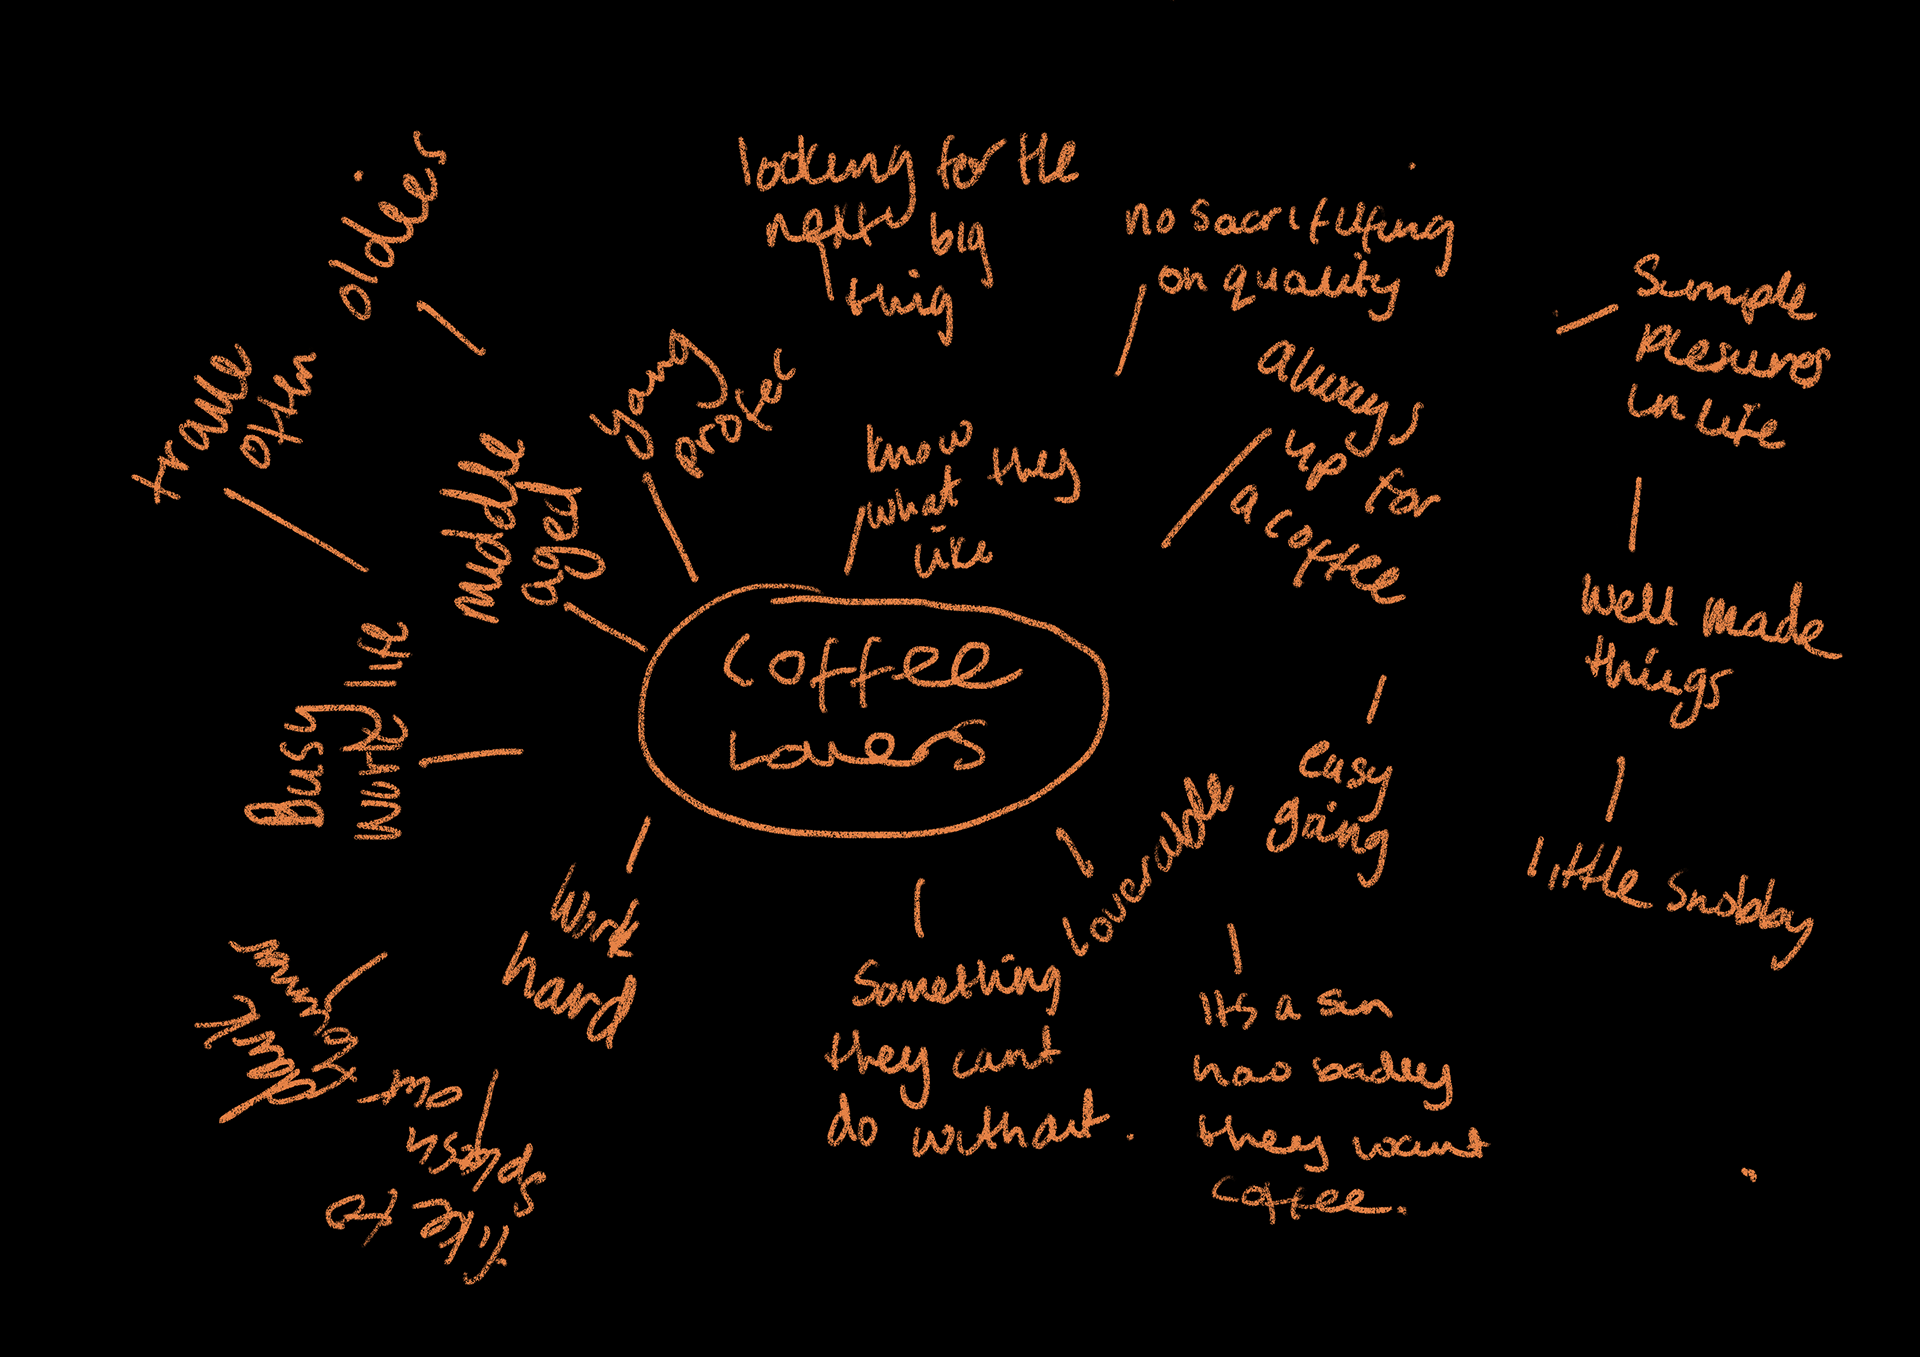 oldies
looking for the
next big
thing
no sacrififing
on quality
Simple
plesures
in life
travle
often
young
profec
always
up for
a coffee
middle
aged
know they
what
like
well made
things
Busy
work life
Coffee
Lovers
easy
going
little snobby
Loverable
work
hard
Something
they cant
do without.
its a sin
how badley
they want
coffee.
like to
splash
out